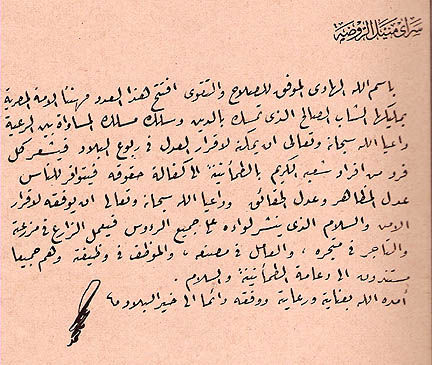 سراي منيل الروضة
باسم الله الهادى الموفق للصلاح والتقوى افتتح هذا العدد مهنئا الامة المصرية
بمليكها الشاب الصالح الذى تمسك بالدين وسلك مسلك المساواة بين الرعية
داعيا الله سبحانه وتعالى ان يمكنه لاقرار العدل فى ربوع البلاد فيشعر كل
فرد من افراد شعبه الكريم بالطمأنينة الى كفالة حقوقه فيتوافر للناس
عدل المظاهر وعدل الحقائق وداعيا الله سبحانه وتعالى ان يوفقه لاقرار
الامن والسلام الذى ينشر لواءه على جميع الرءوس فيعمل الزارع فى مزرعته
والتاجر فى متجره ، والعامل فى مصنعه ، والموظف فى وظيفته وهم جميعا
مستندون الى دعامة الطمأنينة والسلام .
أمده الله بعناية ورعاية ووفقه دائما الى خير البلاد